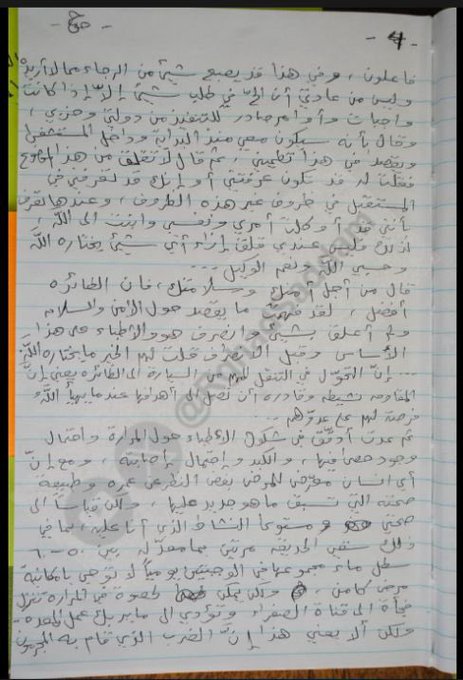 - 4 -
- ح -
فاعلون ، وفي هذا قد يصبح شيئ من الرجاء مما لا أريده
وليس من عادتي أن ألحّ في طلب شيئ إلاّ إذا كانت
واجبات وأوامر صادرة للتنفيذ من دولتي وحزبي ،
وقال بأنه سيكون معي منذ البداية وداخل المستشفى
ويقصد في هذا تطميني ، ثم قال لا تقلق من هذا الموضوع
فقلت له قد تكون عرفتني أو إنك قد تعرفني في
المستقبل في ظروف غير هذه الظروف ، وعندها تعرف
بأنني قد أوكلت أمري ونفسي وابنت الى اللّه ،
لذلك فليس عندي قلق إزاء أي شيئ يختاره اللّه
وحسبي اللّه ونعم الوكيل ...
قال من أجل أمنك وسلامتك ، فان الطائرة
أفضل ، لقد فهمت ما يقصد حول الأمن والسلامه
ولم أعلق بشيئ وانصرف هو والأطباء على هذا
الأساس وقبل أن ينصرف قلت لهم الخير ما يختاره اللّه
... إنّ التحوّل في التنقل للمهم من السيارة الى الطائره يعني إنّ
المقاومه نشيطه وقادره أن تصل الى أهدافها عندما يهيأ اللّه
فرصة لهم على عدوّهم ...
ثم عدت أدقّق في شكوك الأطباء حول المرارة واحتمال
وجود حصى فيها ، والكبد واحتمال إصابته ومع إنّ
أي انسان معرّض للمرض بغض النظر عن عمره وطبيعة
صحته التي تسبق ما هو جديد عليها ، ولكن قياساً الى
صحتي ومستوى النشاط الذي أنا عليه ، بما في
ذلك سقي الحديقة مرتين بما معدّله بين ٥٠ - ٦٠
سطل ماء مجموعها في الوجبتين يومياً لا توحي بامكانية
مرض كامن ، ولكن يمكن لحصوة في المرارة تنزل
فجأة الى قناة الصفراء وتؤدي الى ما يربك عمل المعدة
ولكن ألا يعني هذا إنّ الضرب الذي قام به المجرمون
@RaghadSaddam